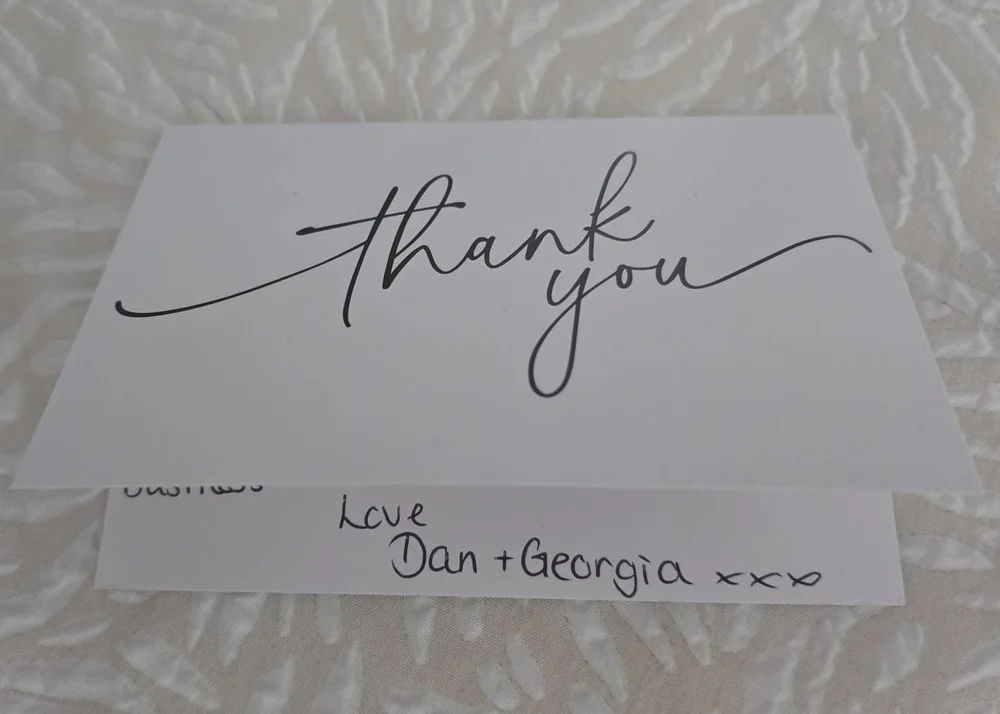 thank
you
Love
Dan + Georgia xxx